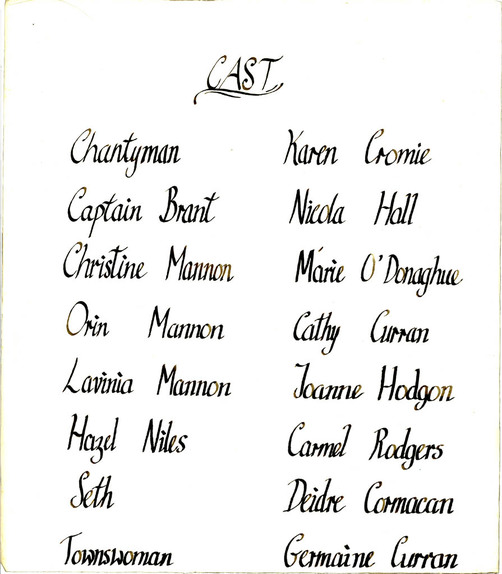 CAST
Chantyman Karen Cromie
Captain Brant Nicola Hall
Christine Mannon Márie O'Donaghue
Orin Mannon Cathy Curran
Lavinia Mannon Joanne Hodgon
Hazel Niles Carmel Rodgers
Seth Deidre Cormacan
Townswoman Germaine Curran